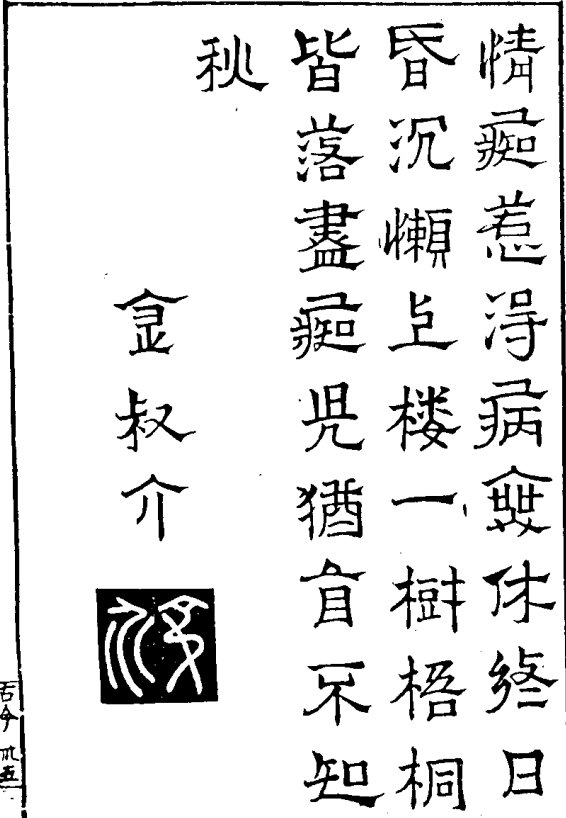 情痴惹得病無休終日
昏沉懶上楼一樹梧桐
皆落盡痴児猶自不知
秋
叔介